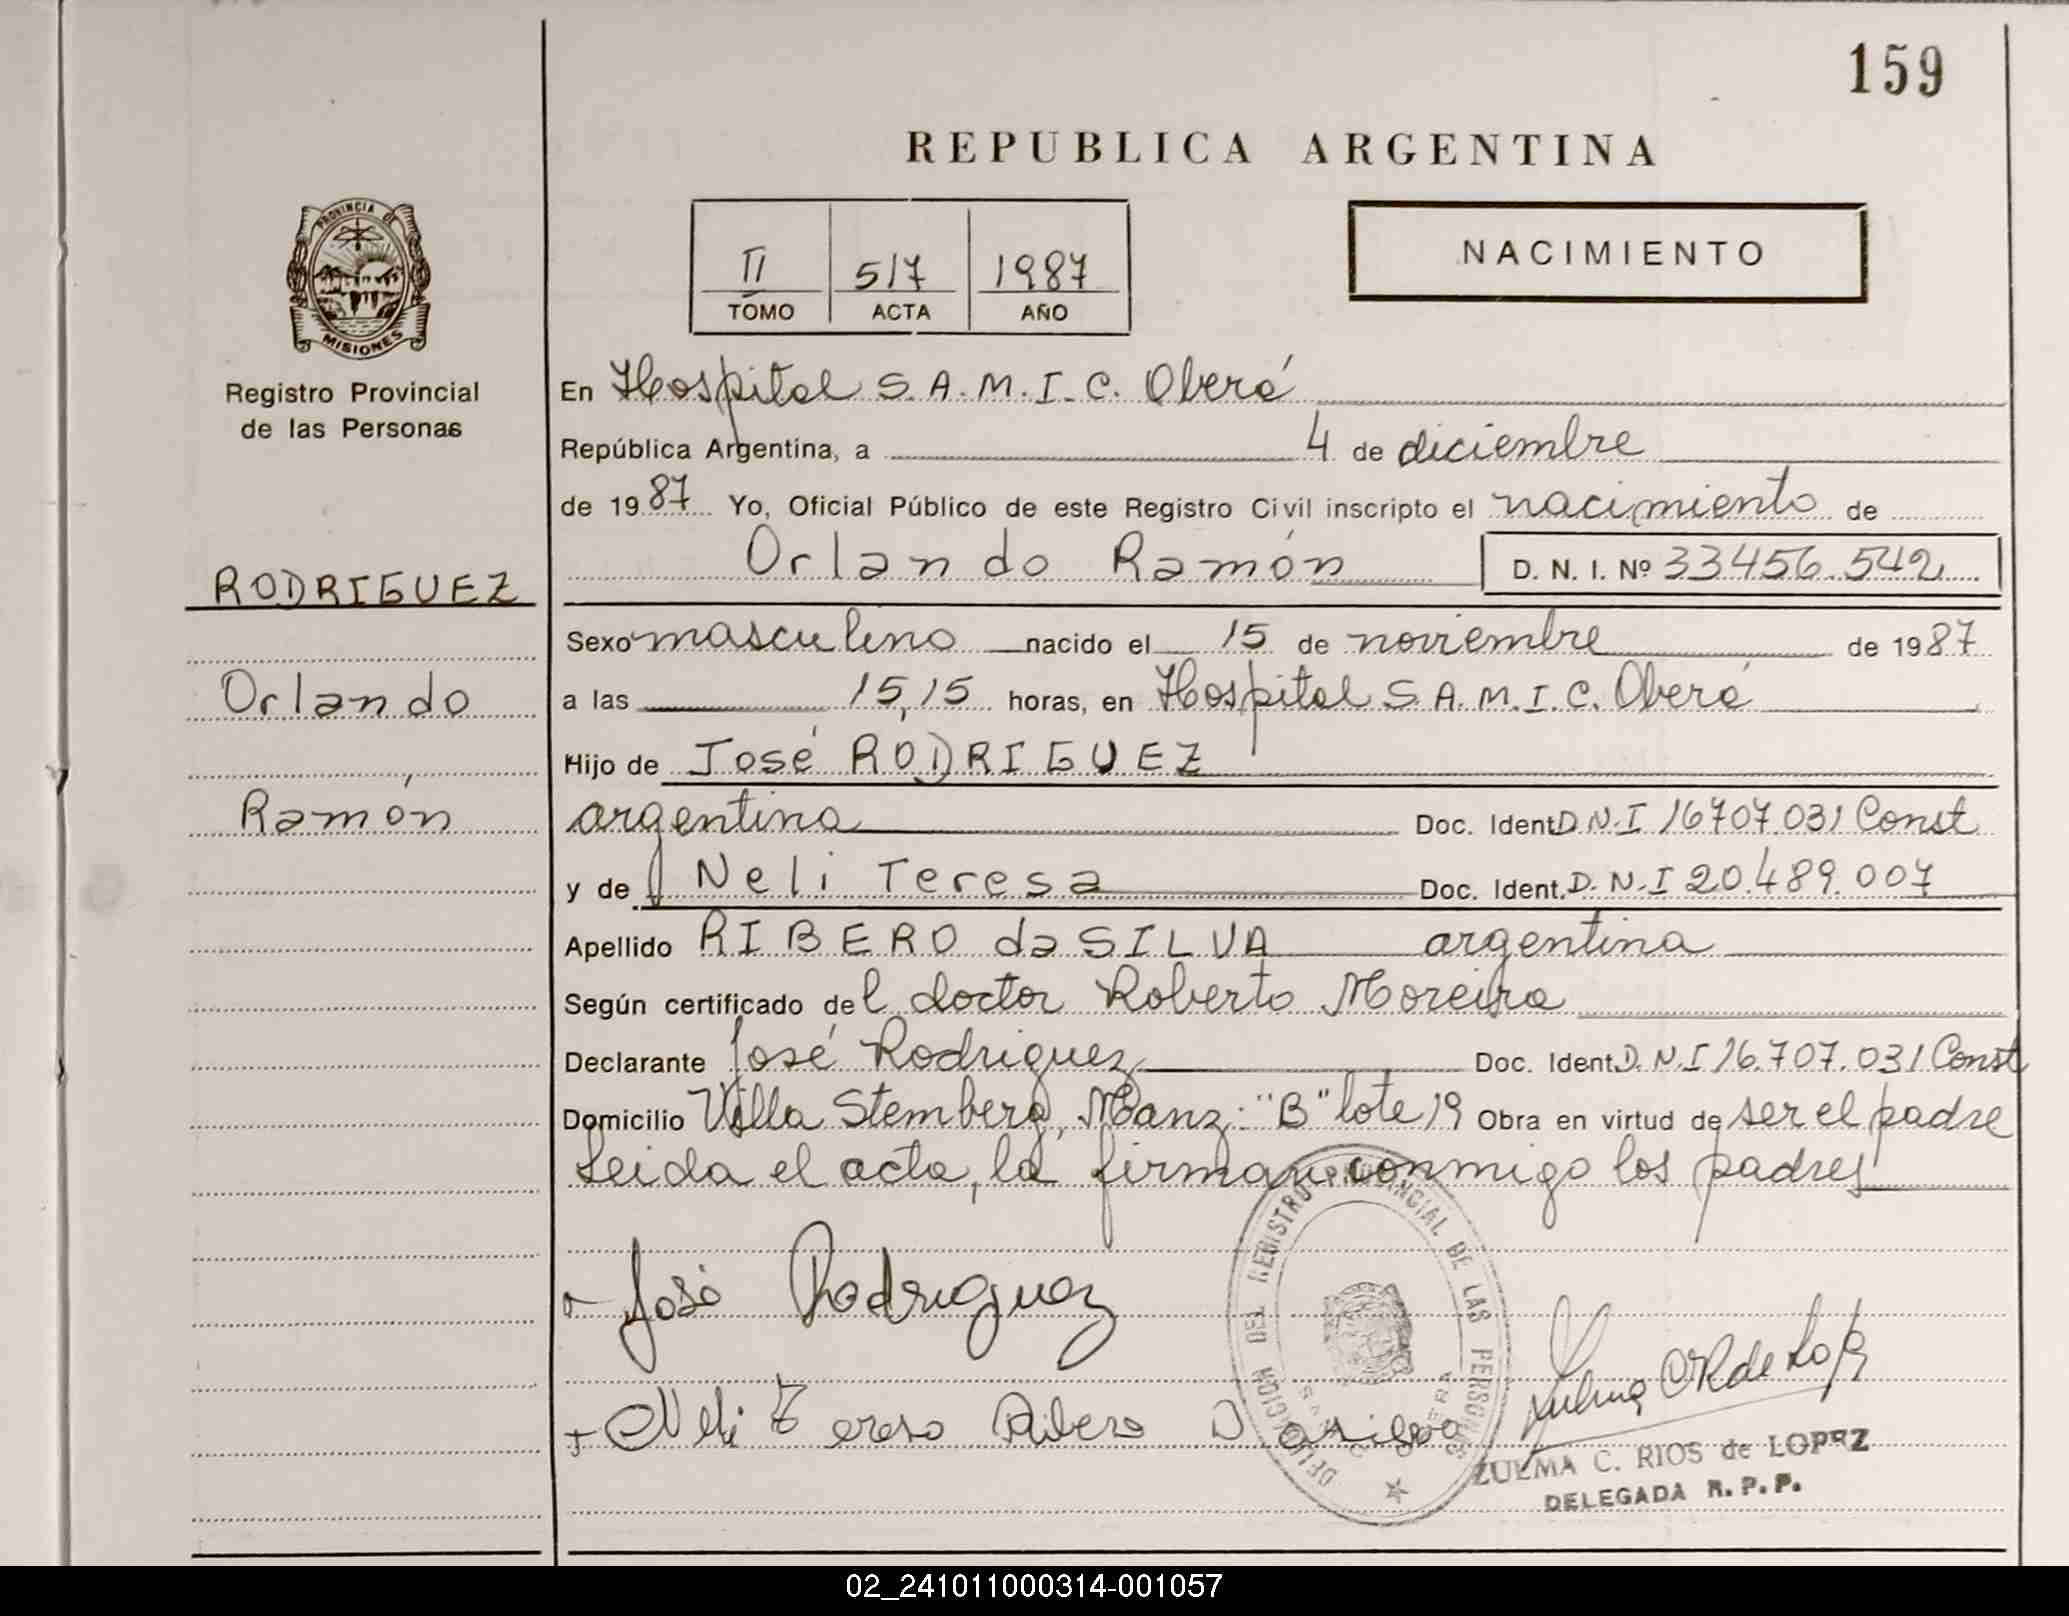 159
REPUBLICA ARGENTINA
PROVINCIA DE
MISIONES
Registro Provincial
de las Personas
II 517 1987
TOMO ACTA AÑO
NACIMIENTO
En Hospital S.A.M.I.C. Oberá
República Argentina, a 4 de diciembre
de 1987 Yo, Oficial Público de este Registro Civil inscripto el nacimiento de
Orlando Ramón D. N. I. Nº 33456.542
RODRIGUEZ
Orlando
Ramón
Sexo masculino nacido el 15 de noviembre de 1987
a las 15,15 horas, en Hospital S.A.M.I.C. Oberá
Hijo de José RODRIGUEZ
argentina Doc. Ident. D.N.I 16707.031 Const
y de Neli Teresa Doc. Ident. D.N.I 20.489.007
Apellido RIBERO da SILVA argentina
Según certificado del doctor Roberto Moreira
Declarante José Rodriguez Doc. Ident. D.N.I 16.707.031 Const
Domicilio Villa Stemberg, Manz: "B" lote 19 Obra en virtud de ser el padre
Leida el acta, la firman conmigo los padres
José Rodriguez
Neli Teresa Ribero Dasilva
DELEGACION DEL REGISTRO PROVINCIAL DE LAS PERSONAS
ZULMA C. RIOS de LOPEZ
DELEGADA R. P. P.
02_241011000314-001057